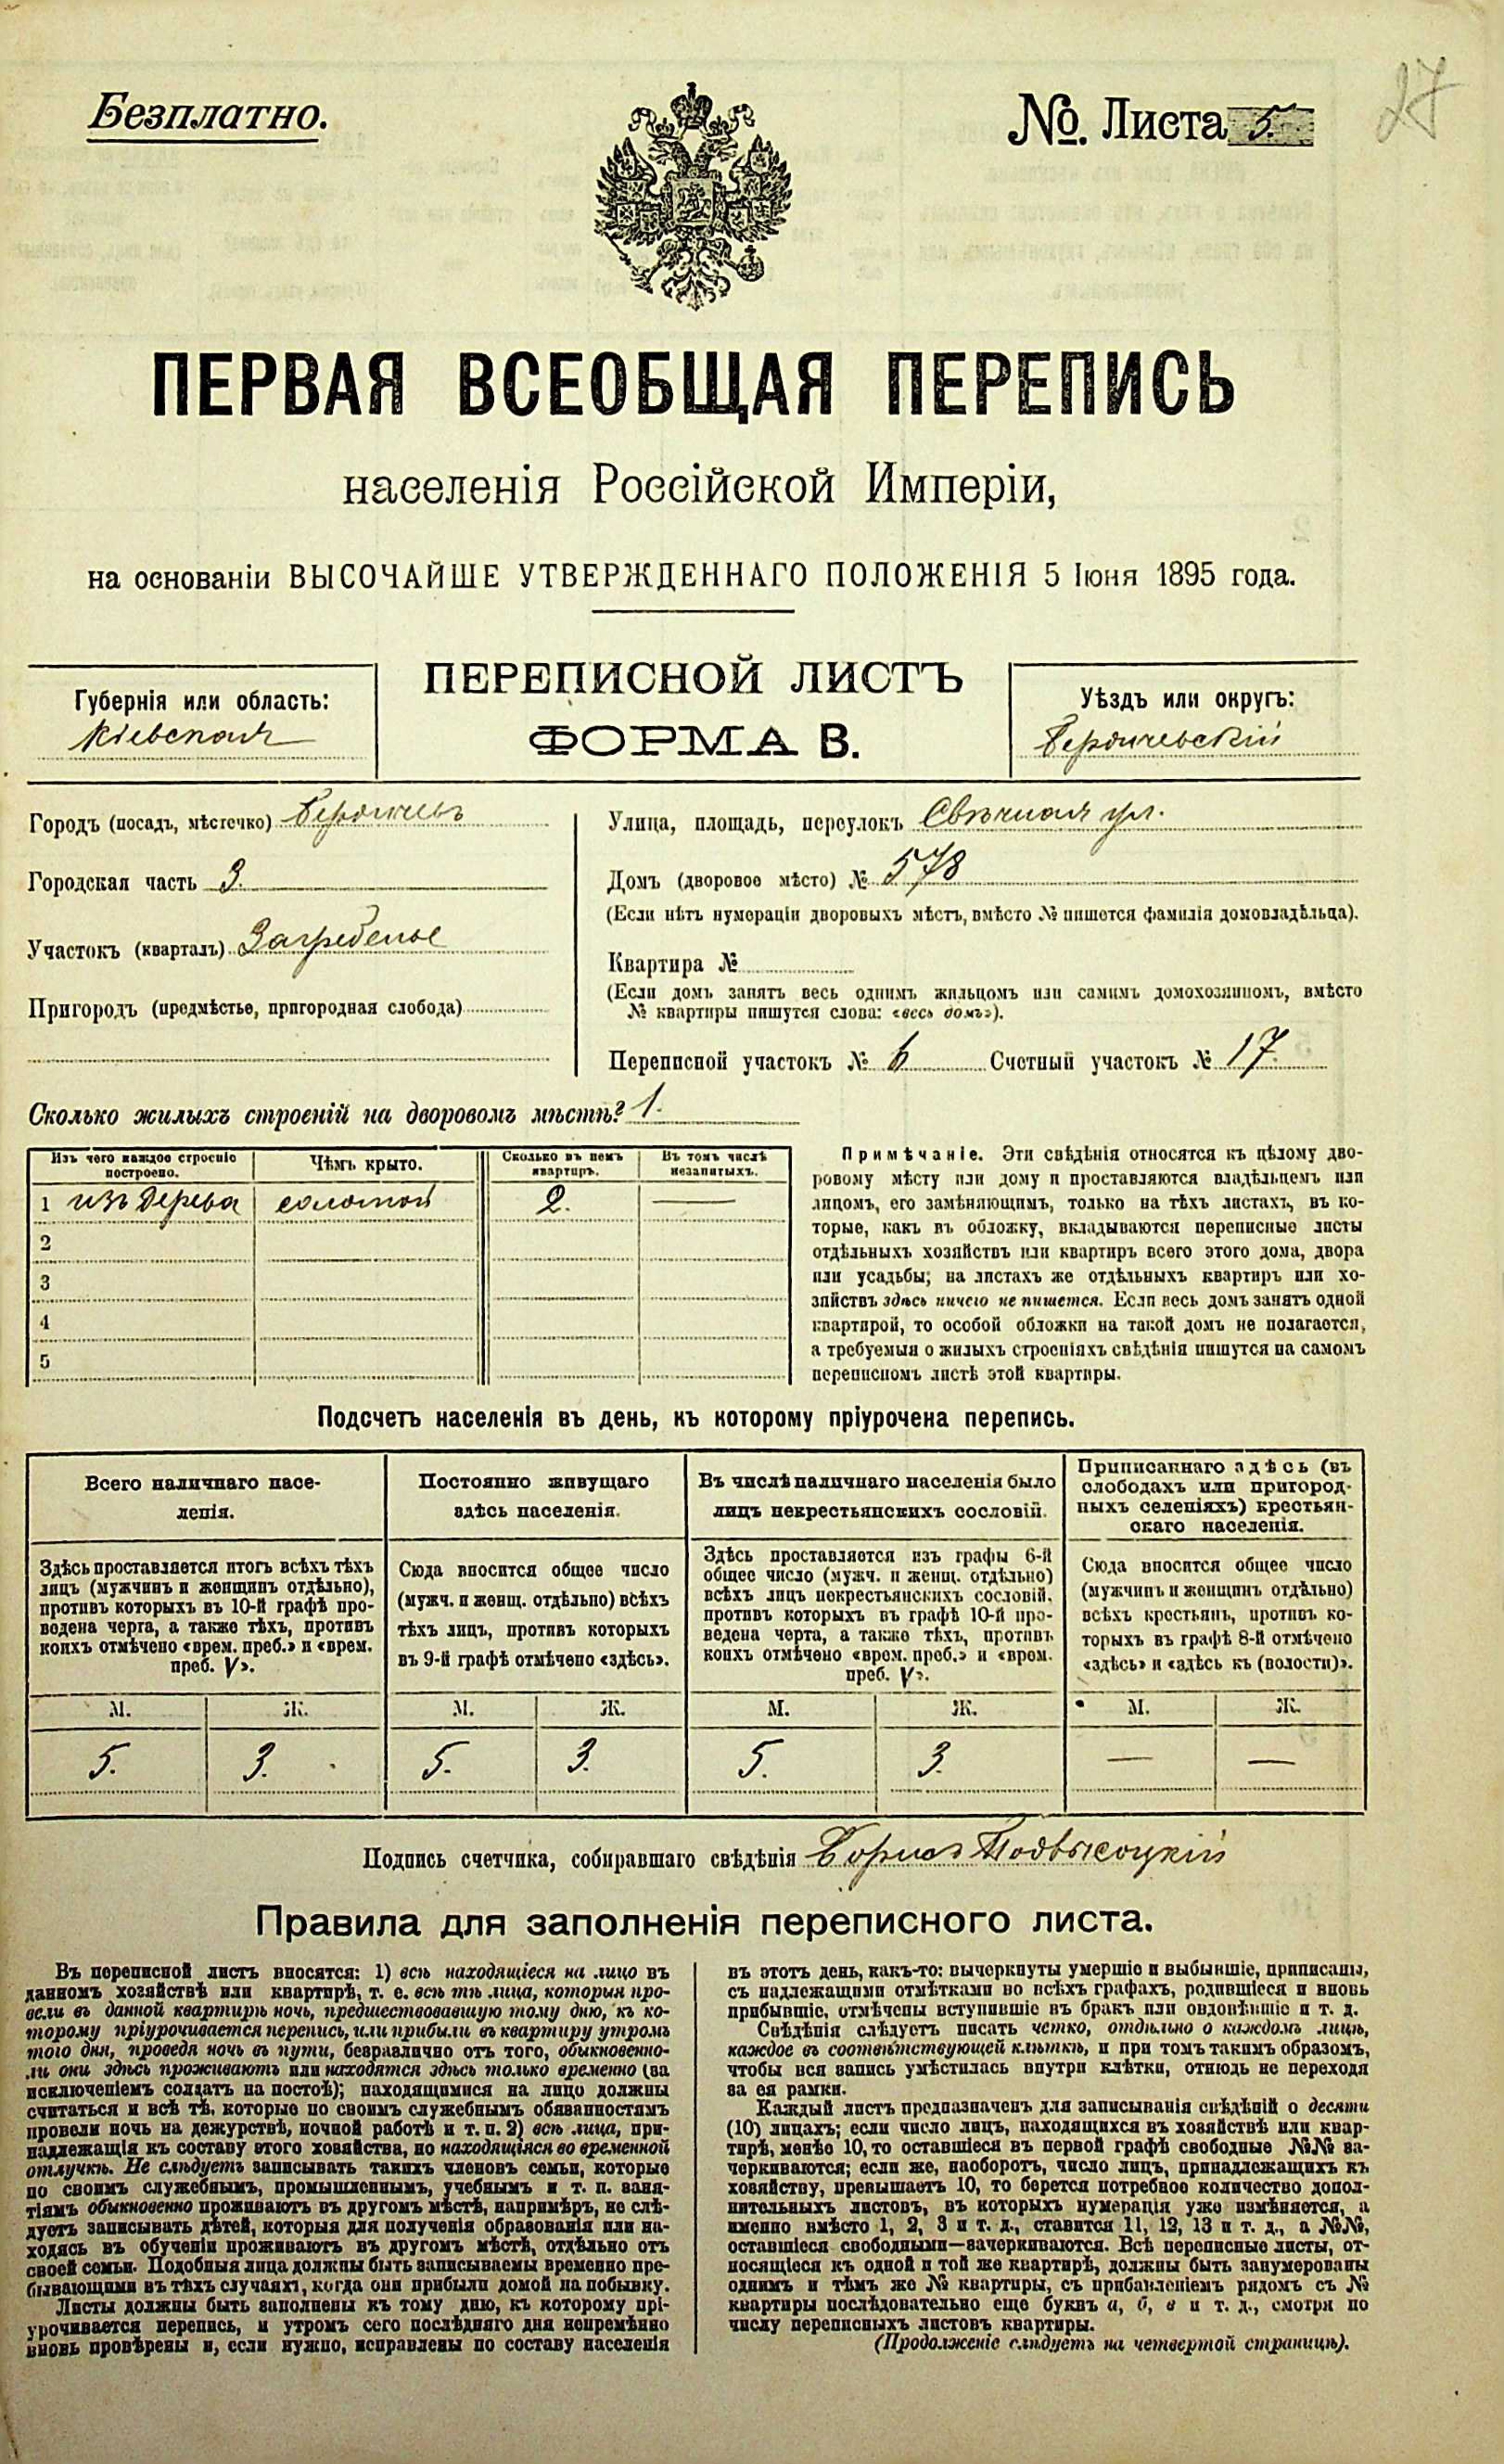 Безплатно.
№. Листа 5.
27
ПЕРВАЯ ВСЕОБЩАЯ ПЕРЕПИСЬ
населенія Россійской Имперіи,
на основаніи ВЫСОЧАЙШЕ УТВЕРЖДЕННАГО ПОЛОЖЕНІЯ 5 Іюня 1895 года.
Губернія или область:
Кіевская
ПЕРЕПИСНОЙ ЛИСТЪ
ФОРМА В.
Уѣздъ или округъ:
Бердичевскій
Городъ (посадъ, мѣстечко) Бердичевъ
Городская часть 3.
Участокъ (кварталъ) Загребелье
Пригородъ (предмѣстье, пригородная слобода)
Улица, площадь, переулокъ Свѣчная ул.
Домъ (дворовое мѣсто) № 578
(Если нѣтъ нумераціи дворовыхъ мѣстъ, вмѣсто № пишется фамилія домовладѣльца).
Квартира №
(Если домъ занятъ весь однимъ жильцомъ или самимъ домохозяиномъ, вмѣсто
№ квартиры пишутся слова: «весь домъ»).
Переписной участокъ № 6 Счетный участокъ № 17.
Сколько жилыхъ строеній на дворовомъ мѣстѣ? 1.
Изъ чего каждое строеніе построено.
Чѣмъ крыто.
Сколько въ немъ квартиръ.
Въ томъ числѣ незанятыхъ.
1 изъ дерева соломой 2. —
2
3
4
5
Примѣчаніе. Эти свѣдѣнія относятся къ цѣлому дво-
ровому мѣсту или дому и проставляются владѣльцемъ или
лицомъ, его замѣняющимъ, только на тѣхъ листахъ, въ ко-
торые, какъ въ обложку, вкладываются переписные листы
отдѣльныхъ хозяйствъ или квартиръ всего этого дома, двора
или усадьбы; на листахъ же отдѣльныхъ квартиръ или хо-
зяйствъ здѣсь ничего не пишется. Если весь домъ занятъ одной
квартирой, то особой обложки на такой домъ не полагается,
а требуемыя о жилыхъ строеніяхъ свѣдѣнія пишутся на самомъ
переписномъ листѣ этой квартиры.
Подсчетъ населенія въ день, къ которому пріурочена перепись.
Всего наличнаго насе-
ленія.
Здѣсь проставляется итогъ всѣхъ тѣхъ
лицъ (мужчинъ и женщинъ отдѣльно),
противъ которыхъ въ 10-й графѣ про-
ведена черта, а также тѣхъ, противъ
коихъ отмѣчено «врем. преб.» и «врем.
преб. V».
М. Ж.
5. 3.
Постоянно живущаго
здѣсь населенія.
Сюда вносится общее число
(мужч. и женщ. отдѣльно) всѣхъ
тѣхъ лицъ, противъ которыхъ
въ 9-й графѣ отмѣчено «здѣсь».
М. Ж.
5. 3.
Въ числѣ наличнаго населенія было
лицъ некрестьянскихъ сословій.
Здѣсь проставляется изъ графы 6-й
общее число (мужч. и женщ. отдѣльно)
всѣхъ лицъ некрестьянскихъ сословій,
противъ которыхъ въ графѣ 10-й про-
ведена черта, а также тѣхъ, противъ
коихъ отмѣчено «врем. преб.» и «врем.
преб. V».
М. Ж.
5. 3.
Приписаннаго здѣсь (въ
слободахъ или пригород-
ныхъ селеніяхъ) крестьян-
скаго населенія.
Сюда вносится общее число
(мужчинъ и женщинъ отдѣльно)
всѣхъ крестьянъ, противъ ко-
торыхъ въ графѣ 8-й отмѣчено
«здѣсь» и «здѣсь къ (волости)».
М. Ж.
— —
Подпись счетчика, собиравшаго свѣдѣнія Борисъ Подвысоцкій
Правила для заполненія переписного листа.
Въ переписной листъ вносятся: 1) всѣ находящіеся на лицо въ
данномъ хозяйствѣ или квартирѣ, т. е. всѣ тѣ лица, которыя про-
вели въ данной квартирѣ ночь, предшествовавшую тому дню, къ ко-
торому пріурочивается перепись, или прибыли въ квартиру утромъ
того дня, проведя ночь въ пути, безразлично отъ того, обыкновенно-
ли они здѣсь проживаютъ или находятся здѣсь только временно (за
исключеніемъ солдатъ на постоѣ); находящимися на лицо должны
считаться и всѣ тѣ, которые по своимъ служебнымъ обязанностямъ
провели ночь на дежурствѣ, ночной работѣ и т. п. 2) всѣ лица, при-
надлежащія къ составу этого хозяйства, но находящіяся во временной
отлучкѣ. Не слѣдуетъ записывать такихъ членовъ семьи, которые
по своимъ служебнымъ, промышленнымъ, учебнымъ и т. п. заня-
тіямъ обыкновенно проживаютъ въ другомъ мѣстѣ, напримѣръ, не слѣ-
дуетъ записывать дѣтей, которыя для полученія образованія или на-
ходясь въ обученіи проживаютъ въ другомъ мѣстѣ, отдѣльно отъ
своей семьи. Подобныя лица должны быть записываемы временно пре-
бывающими въ тѣхъ случаяхъ, когда они прибыли домой на побывку.
Листы должны быть заполнены къ тому дню, къ которому прі-
урочивается перепись, и утромъ сего послѣдняго дня непремѣнно
вновь провѣрены и, если нужно, исправлены по составу населенія
въ этотъ день, какъ-то: вычеркнуты умершіе и выбывшіе, приписаны,
съ надлежащими отмѣтками во всѣхъ графахъ, родившіеся и вновь
прибывшіе, отмѣчены вступившіе въ бракъ или овдовѣвшіе и т. д.
Свѣдѣнія слѣдуетъ писать четко, отдѣльно о каждомъ лицѣ,
каждое въ соотвѣтствующей клѣткѣ, и при томъ такимъ образомъ,
чтобы вся запись умѣстилась внутри клѣтки, отнюдь не переходя
за ея рамки.
Каждый листъ предназначенъ для записыванія свѣдѣній о десяти
(10) лицахъ; если число лицъ, находящихся въ хозяйствѣ или квар-
тирѣ, менѣе 10, то оставшіеся въ первой графѣ свободные №№ за-
черкиваются; если же, наоборотъ, число лицъ, принадлежащихъ къ
хозяйству, превышаетъ 10, то берется потребное количество допол-
нительныхъ листовъ, въ которыхъ нумерація уже измѣняется, а
именно вмѣсто 1, 2, 3 и т. д., ставится 11, 12, 13 и т. д., а №№,
оставшіеся свободными—зачеркиваются. Всѣ переписные листы, от-
носящіеся къ одной и той же квартирѣ, должны быть занумерованы
однимъ и тѣмъ же № квартиры, съ прибавленіемъ рядомъ съ №
квартиры послѣдовательно еще буквъ а, б, в и т. д., смотря по
числу переписныхъ листовъ квартиры.
(Продолженіе слѣдуетъ на четвертой страницѣ).